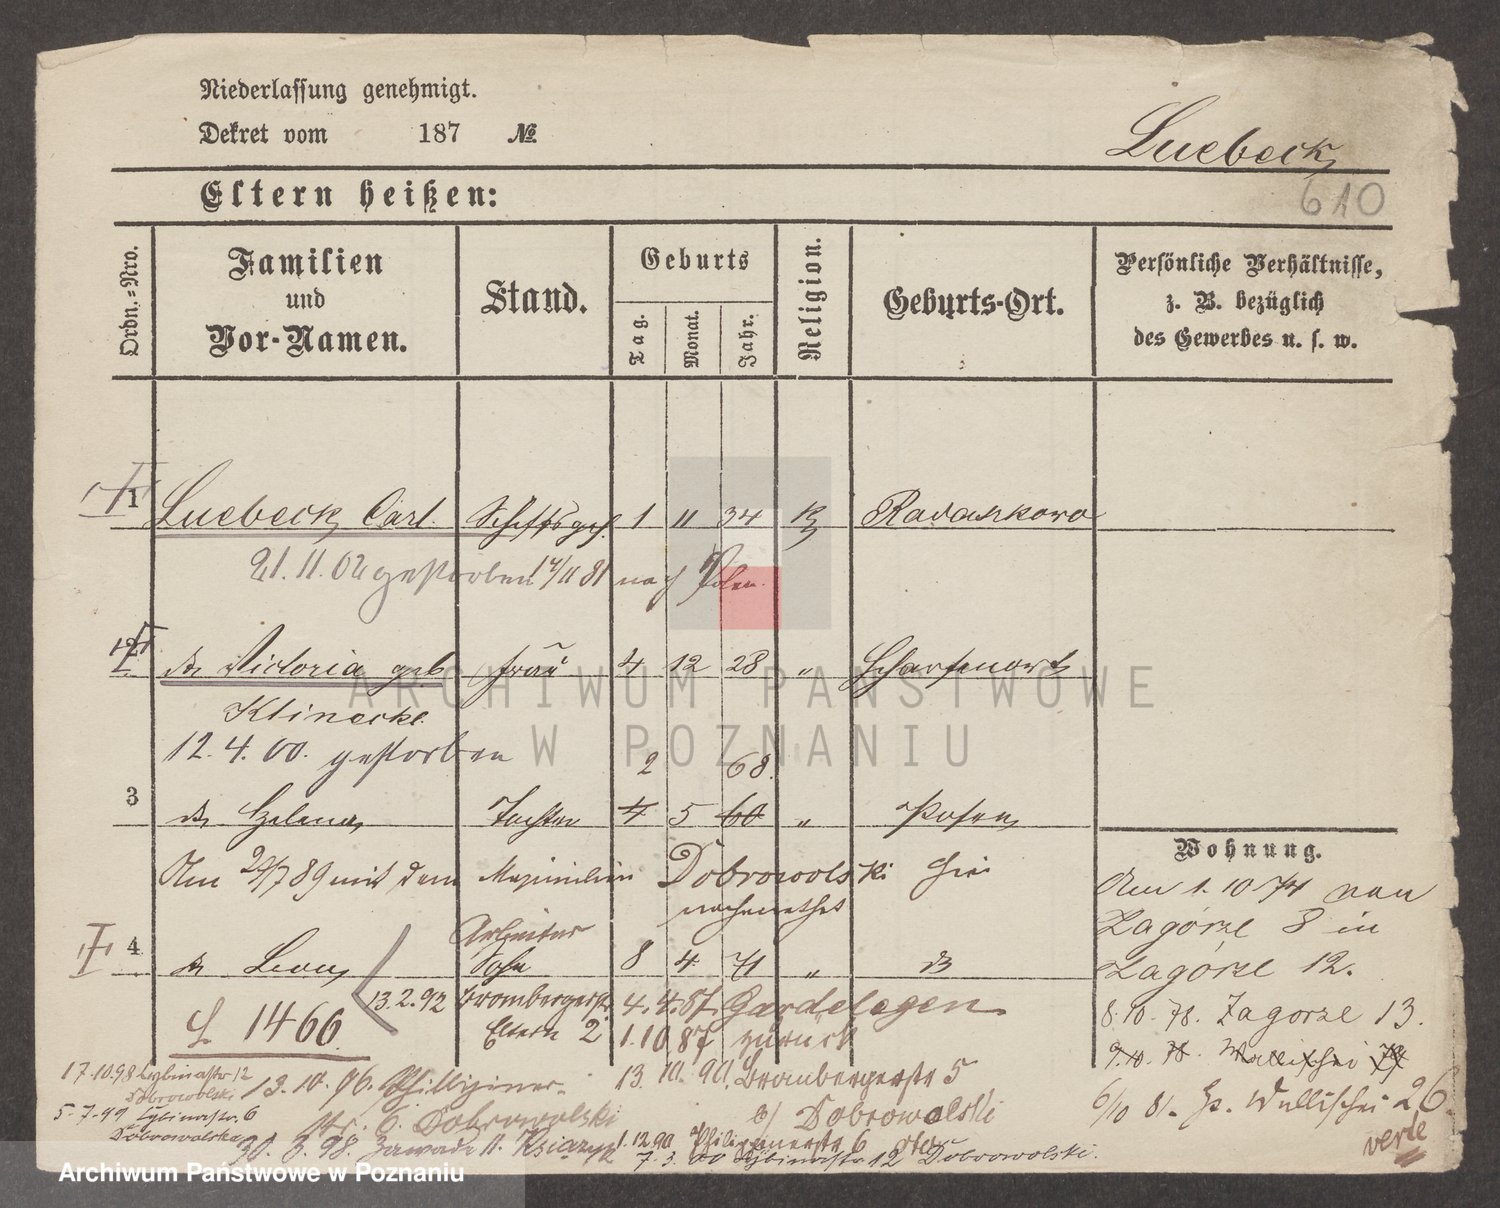 Niederlassung genehmigt.
Dekret vom 187 №
Luebeck
610
Eltern heißen:
Ordn.-Nro.
Familien
und
Vor-Namen.
Stand.
Geburts
Tag.
Monat.
Jahr.
Religion.
Geburts-Ort.
Persönliche Verhältnisse,
z. B. bezüglich
des Gewerbes u. s. w.
1 Luebeck Carl. Schiffsgeh. 1 11 34 k Radankowo
21.11.02 gestorben 14/11 81 nach Polen.
2 Victoria geb Frau 4 12 28 " Scharfenort
12.4.00. gestorben
2 68.
3 Helena Tochter 4 5 60 " Posen
Wohnung.
Am 29/7 89 mit dem Maximilian Dobrowolski hier
Am 1.10 74 von
Zagórze 8 in
Arbeiter
4 Leon Sohn 8 4 71 "
Zagórze 12.
13.2.92 Brombergerstr 4.4.87. Gardelegen
8.10.78. Zagorze 13.
1466
Eltern 2 1.10 87 zurück
9.10.78. Wallischei
17.10.98 Cybinastr 12
Dobrowolski
13.10.96. Phillipiner-
13.10.90. Brombergerstr 5
6/10 81. Wallischei 26
5.7.99 Cybinastr. 6
str. 6. Dobrowolski
b/ Dobrowolski
Dobrowolska
30.3.98. Zawade 11. Ksiazyk
1.12.90 Philippinerstr 6
verte
7.3.00 Cybinastr 12 Dobrowolski.
ARCHIWUM PAŃSTWOWE
W POZNANIU
Archiwum Państwowe w Poznaniu